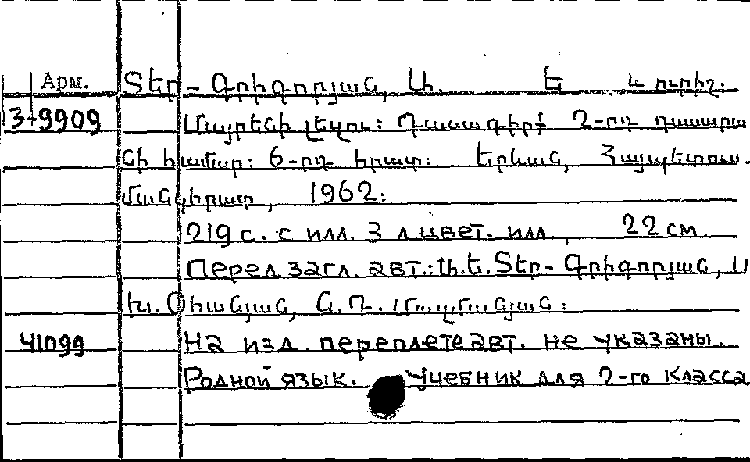 Арм. Տեր-Գրիգորյան, Ա. Ե և ուրիշ.
3-9909 Մայրենի լեզու: Դասագիրք 2-րդ դասարա
նի համար: 6-րդ հրատ: Երևան, Հայպետուս.
մանկհրատ, 1962:
219 с. с илл. 3 л. цвет. илл, 22 см
Перед загл. авт.: Ա.Ե. Տեր-Գրիգորյան, Ա
խ. Օհանյան, Ա.Դ.
41099 На изд. переплете авт. не указаны.
Родной язык. Учебник для 2-го класса